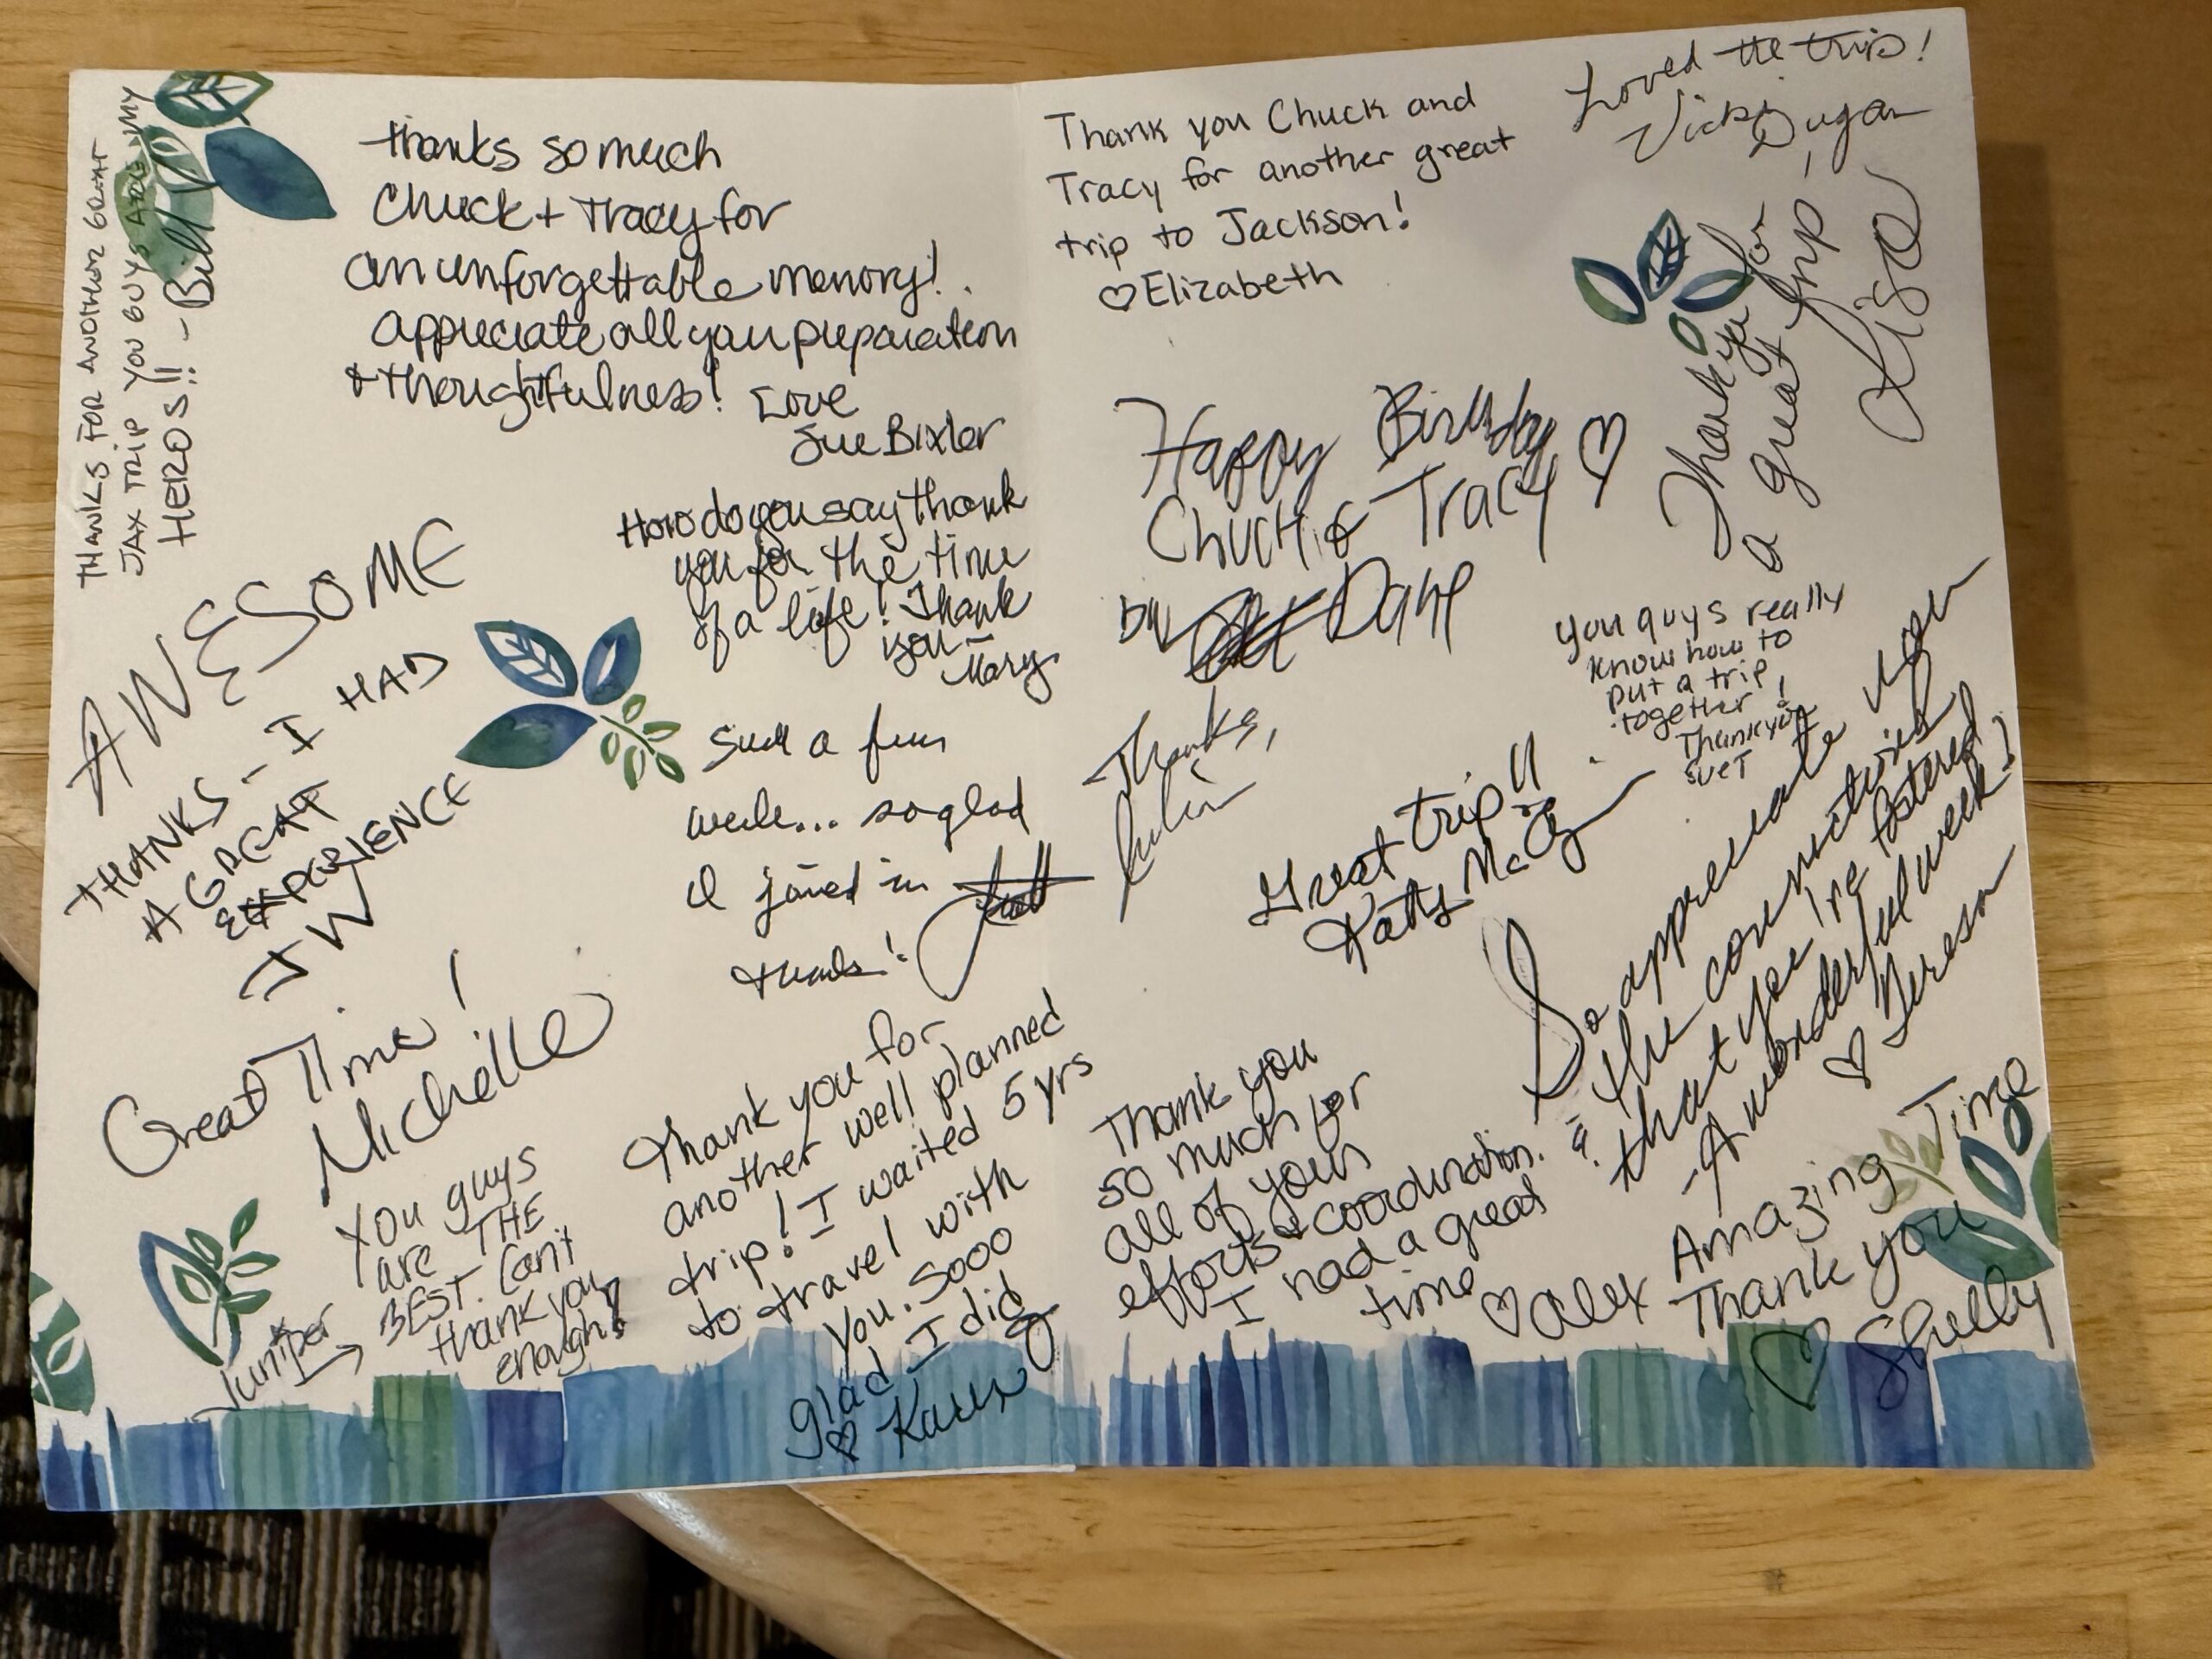 THANKS FOR ANOTHER GREAT
JAX TRIP YOU GUYS ARE MY
HEROS!! - Bill
thanks so much
Chuck + Tracy for
an unforgettable memory!
appreciate all your preparation
+ thoughtfulness! Love
Sue Bixler
How do you say thank
you for the time
of a life! Thank
you -
Mary
AWESOME
THANKS - I HAD
A GREAT
EXPERIENCE
JW
Such a fun
week... so glad
I joined in
thanks!
Great Time!
Michelle
You guys
are THE
BEST. Can't
thank you
enough!
Juniper
Thank you for
another well planned
trip! I waited 5 yrs
to travel with
you. Sooo
glad I did
♡ Karen
Thank you Chuck and
Tracy for another great
trip to Jackson!
♡ Elizabeth
Loved the trip!
Vicki Dugan
Thank you for
a great trip -
Lisa
Happy Birthday ♡
Chuck & Tracy
Dave
Thanks,
You guys really
know how to
put a trip
together!
Thank you
Sue T
Great trip!!
Kathy
So appreciate you
& the connections
that you've fostered
- A wonderful week!
♡ Teresa
Thank you
so much for
all of your
efforts & coordination.
I had a great
time
♡ Alex
Amazing Time
Thank you
♡ Shelly